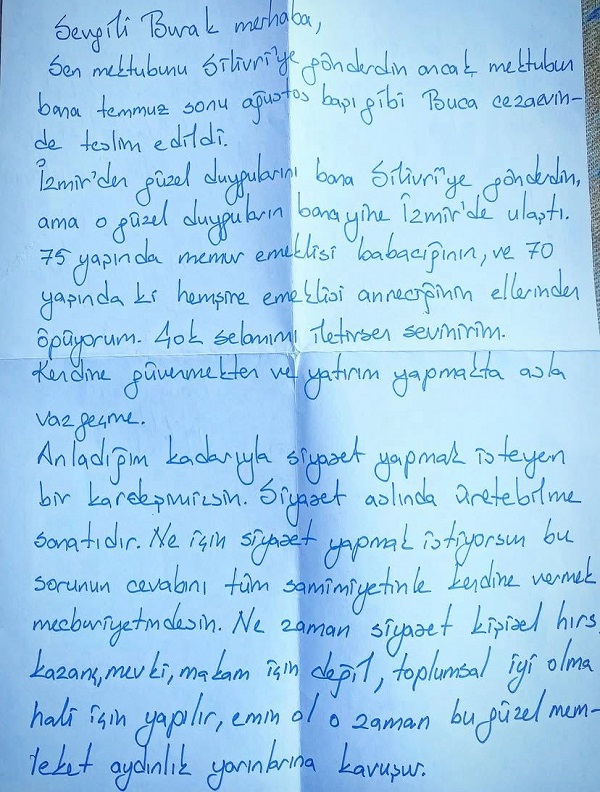 Sevgili Burak merhaba,
Sen mektubunu Silivri'ye gönderdin ancak mektubun
bana temmuz sonu ağustos başı gibi Buca cezaevin-
de teslim edildi.
İzmir'den güzel duygularını bana Silivri'ye gönderdin,
ama o güzel duyguların bana yine İzmir'de ulaştı.
75 yaşında memur emeklisi babacığının, ve 70
yaşında ki hemşire emeklisi anneciğinin ellerinden
öpüyorum. Çok selamımı iletirsen sevinirim.
Kendine güvenmekten ve yatırım yapmakta asla
vazgeçme.
Anladığım kadarıyla siyaset yapmak isteyen
bir kardeşimizsin. Siyaset aslında üretebilme
sanatıdır. Ne için siyaset yapmak istiyorsun bu
sorunun cevabını tüm samimiyetinle kendine vermek
mecburiyetindesin. Ne zaman siyaset kişisel hırs,
kazanç, mevki, makam için değil, toplumsal iyi olma
hali için yapılır, emin ol o zaman bu güzel mem-
leket aydınlık yarınlarına kavuşur.